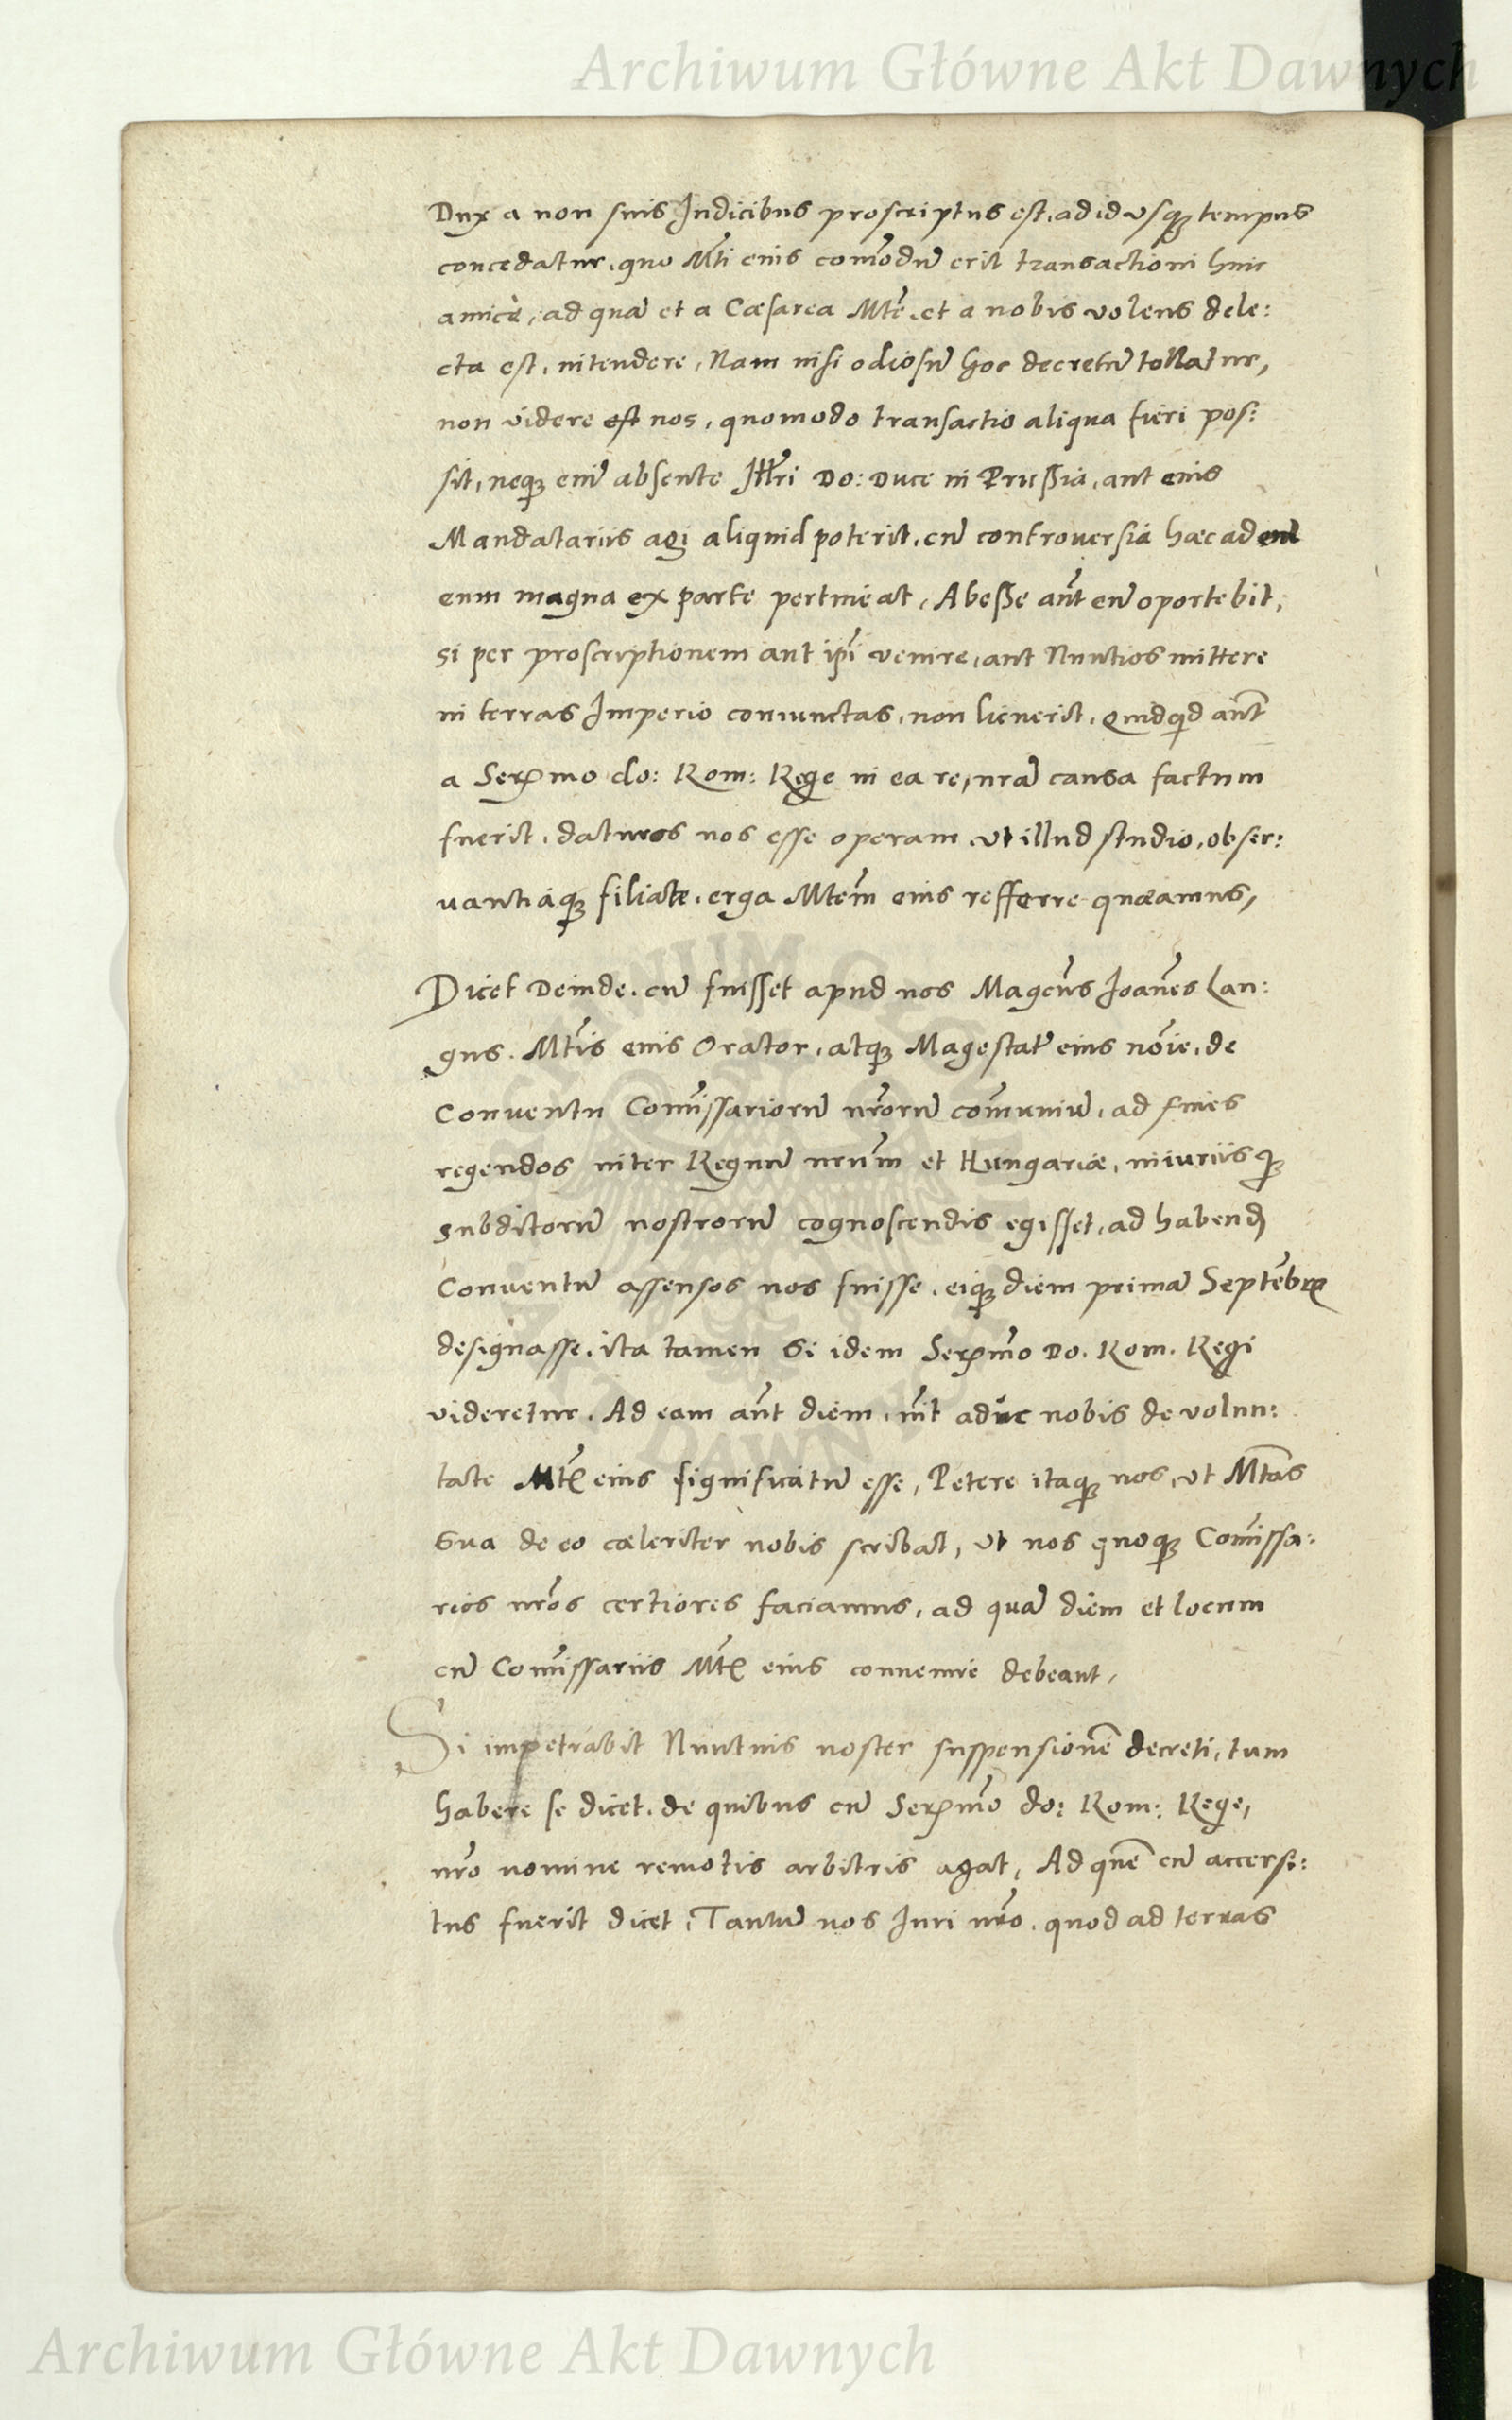 Archiwum Główne Akt Dawnych
Dux a non suis Iudicibus proscriptus est, ad id usq₃ tempus
concedatur, quo Mti eius com̃odũ erit transactioni huic
amicè, ad quã et a Cæsarea Mte, et a nobis volens dele:
cta est, intendere, Nam nisi odiosũ hoc decretũ tollatur,
non videre est nos, quomodo transactio aliqua fieri pos:
sit, neq₃ enĩ absente Illtri Do: Duce in Prußia, aut eius
Mandatariis agi aliquid poterit, cũ controversia hæc ad
eum magna ex parte pertineat, Abeße aũt eũ oportebit,
si per proscriptionem aut ipĩ venire, aut Nuntios mittere
in terras Imperio coniunctas, non licuerit, Quidq̃d aũt
a Serᵐᵒ do: Rom: Rege in ea re, nrã causa factum
fuerit, daturos nos esse operam, ut illud studio, obser:
vantiaq₃ filiali, erga Mtem̃ eius refferre queamus,
Dicet Deinde, cũ fuisset apud nos Magcũs Ioañes Lan:
gus, Mtis̃ eius Orator, atq₃ Magestatĩs eius noĩe, de
Conventu Com̃issariorũ nrõrũ com̃uniũ, ad fines
regendos inter Regnũ nrũm et Hungariæ, iniuriisq₃
subditorũ nostrorũ cognoscendis egisset, ad habend
Conventũ assensos nos fuisse, eiq₃ diem primã Septẽbr
designasse, ita tamen si idem Serᵐᵒ Do. Rom. Regi
videretur. Ad eam aũt diem, nĩl aduc nobis de volun:
tate Mt̃ eius significatũ esse, Petere itaq₃ nos, ut Mtãs
Sua de eo cæleriter nobis scribat, ut nos quoq₃ Com̃issa:
rios nrõs certiores faciamus, ad quã diem et locum
cũ Com̃issariis Mt̃ eius convenire debeant,
Si impetrabit Nuntius noster suspensionẽ decreti, tum
habere se dicet, de quibus cũ Serᵐᵒ do: Rom: Rege,
nrõ nomine remotis arbitris agat, Ad quẽ cũ accersi:
tus fuerit dicet, Tantũ nos Iuri nrõ, quod ad terras
Archiwum Główne Akt Dawnych